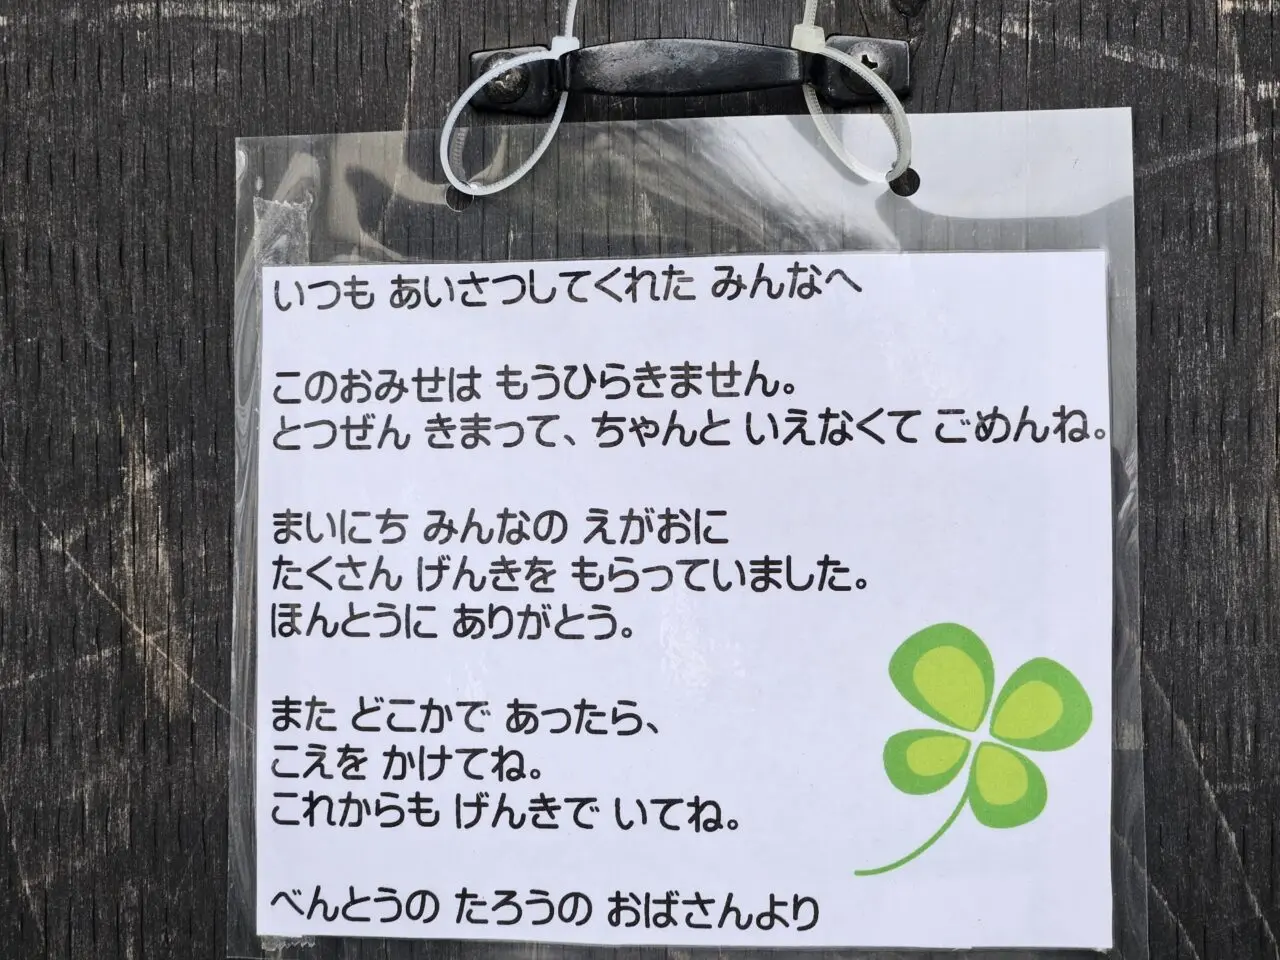 いつも あいさつしてくれた みんなへ
このおみせは もうひらきません。
とつぜん きまって、ちゃんと いえなくて ごめんね。
まいにち みんなの えがおに
たくさん げんきを もらっていました。
ほんとうに ありがとう。
また どこかで あったら、
こえを かけてね。
これからも げんきで いてね。
べんとうの たろうの おばさんより